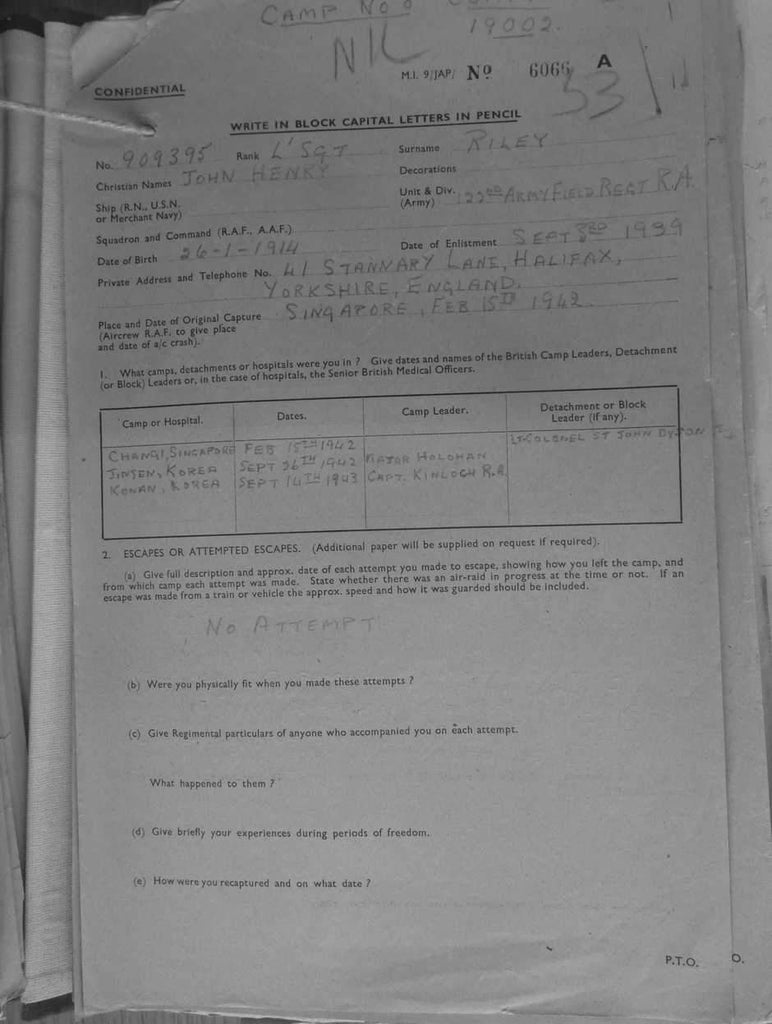 CAMP NO
19002.
NIL
M.I. 9/JAP/ No 6066 A
53
CONFIDENTIAL
WRITE IN BLOCK CAPITAL LETTERS IN PENCIL
No. 909395 Rank L/SGT Surname RILEY
Christian Names JOHN HENRY Decorations
Ship (R.N., U.S.N. or Merchant Navy) Unit & Div. (Army) 122ND ARMY FIELD REGT R.A.
Squadron and Command (R.A.F., A.A.F.)
Date of Birth 26-1-1914 Date of Enlistment SEPT 3RD 1939
Private Address and Telephone No. 41 STANNARY LANE, HALIFAX,
YORKSHIRE, ENGLAND.
Place and Date of Original Capture SINGAPORE, FEB 15TH 1942.
(Aircrew R.A.F. to give place
and date of a/c crash).
1. What camps, detachments or hospitals were you in ? Give dates and names of the British Camp Leaders, Detachment
(or Block) Leaders or, in the case of hospitals, the Senior British Medical Officers.
Camp or Hospital. Dates. Camp Leader. Detachment or Block Leader (if any).
CHANGI, SINGAPORE FEB 15TH 1942 LT-COLONEL ST JOHN DYSON
JINSEN, KOREA SEPT 26TH 1942 MAJOR HOLOHAN
KONAN, KOREA SEPT 14TH 1943 CAPT. KINLOCH R.A.
2. ESCAPES OR ATTEMPTED ESCAPES. (Additional paper will be supplied on request if required).
(a) Give full description and approx. date of each attempt you made to escape, showing how you left the camp, and
from which camp each attempt was made. State whether there was an air-raid in progress at the time or not. If an
escape was made from a train or vehicle the approx. speed and how it was guarded should be included.
NO ATTEMPT
(b) Were you physically fit when you made these attempts ?
(c) Give Regimental particulars of anyone who accompanied you on each attempt.
What happened to them ?
(d) Give briefly your experiences during periods of freedom.
(e) How were you recaptured and on what date ?
P.T.O.
O.